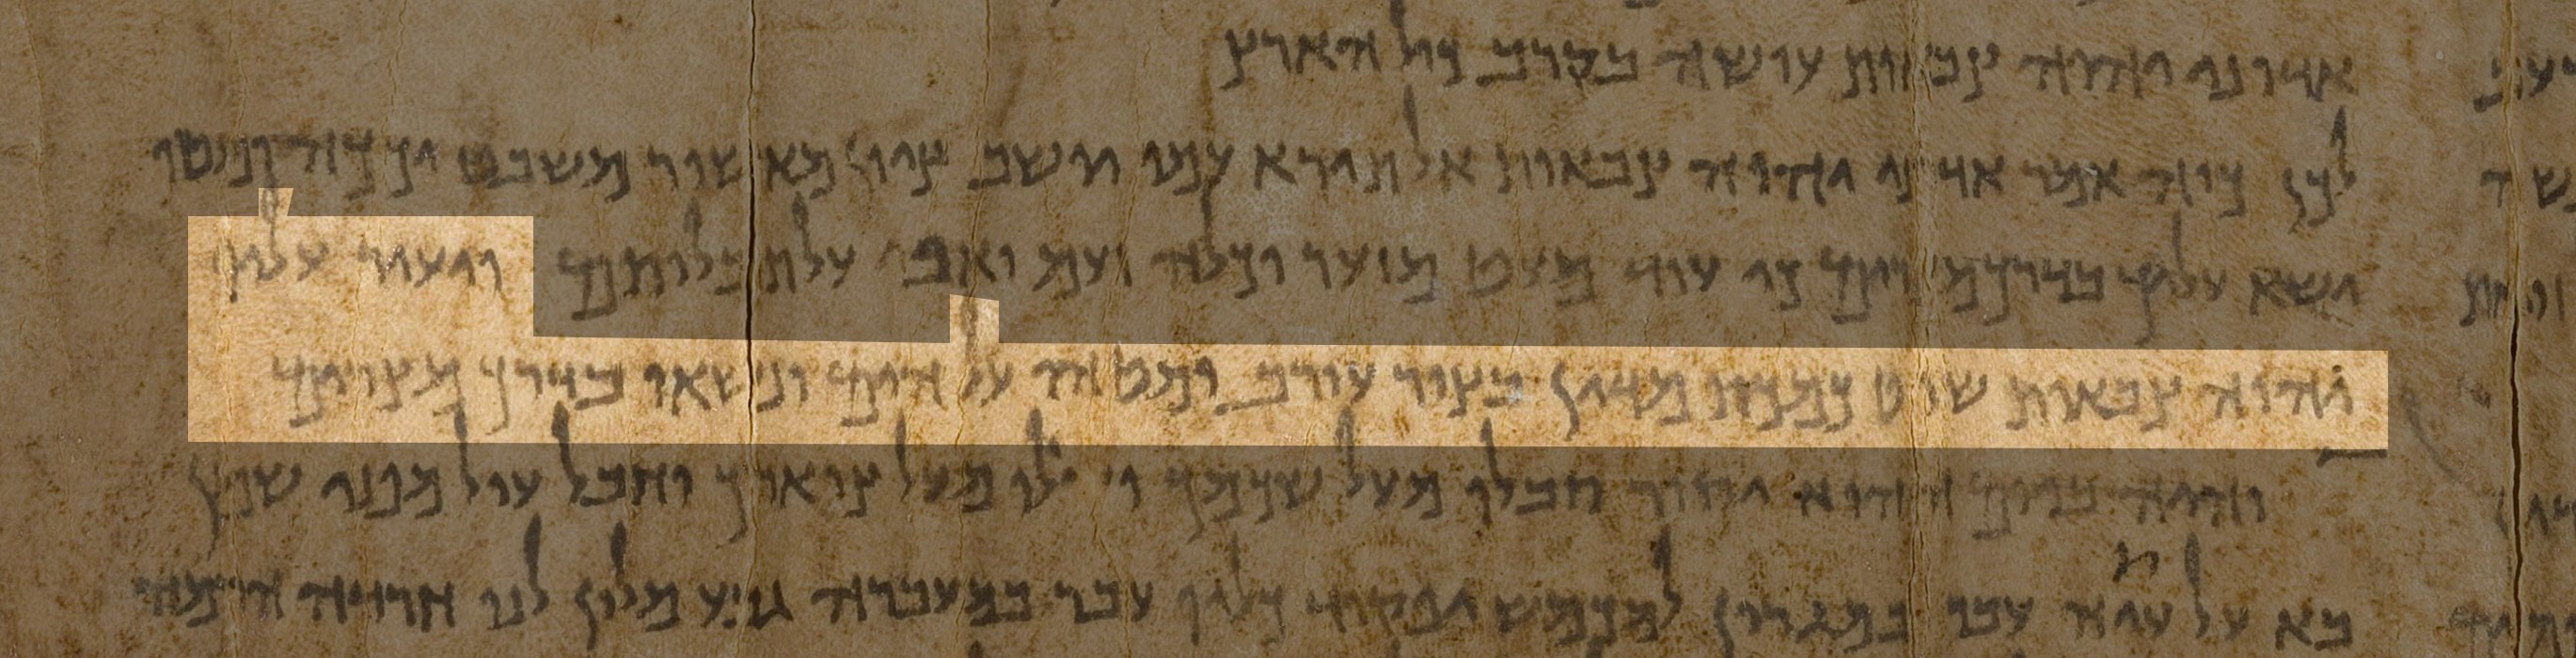 אדוני יהוה צבאות עושה בקרב כול הארץ
לכן כוה אמר אדוני יהוה צבאות אל תירא עמי יושב ציון מאשור משבט
ישא עליך בדרך מצרים כי עוד מעט מזער וכלה זעם ואפי על תבליתם ויעיר עליו
יהוה צבאות שוט כמכת מדין בצור עורב ומטהו על הים ונשאו בדרך מצרים
והיה ביום ההוא יסור סבלו מעל שכמך ועולו מעל צוארך וחבל עול מפני שמן
בא על עיתה עבר במגרון למכמש יפקיד כליו עבר במעברה גבע מלון לנו חרדה הרמה